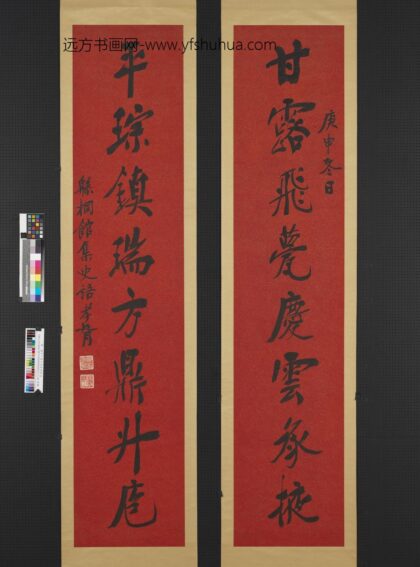 远方书画网-www.yfshuhua.com
甘露飛甍慶雲承掖
庚申冬日
平琮鎮瑞方鼎升庖
桐館集史語孝胥